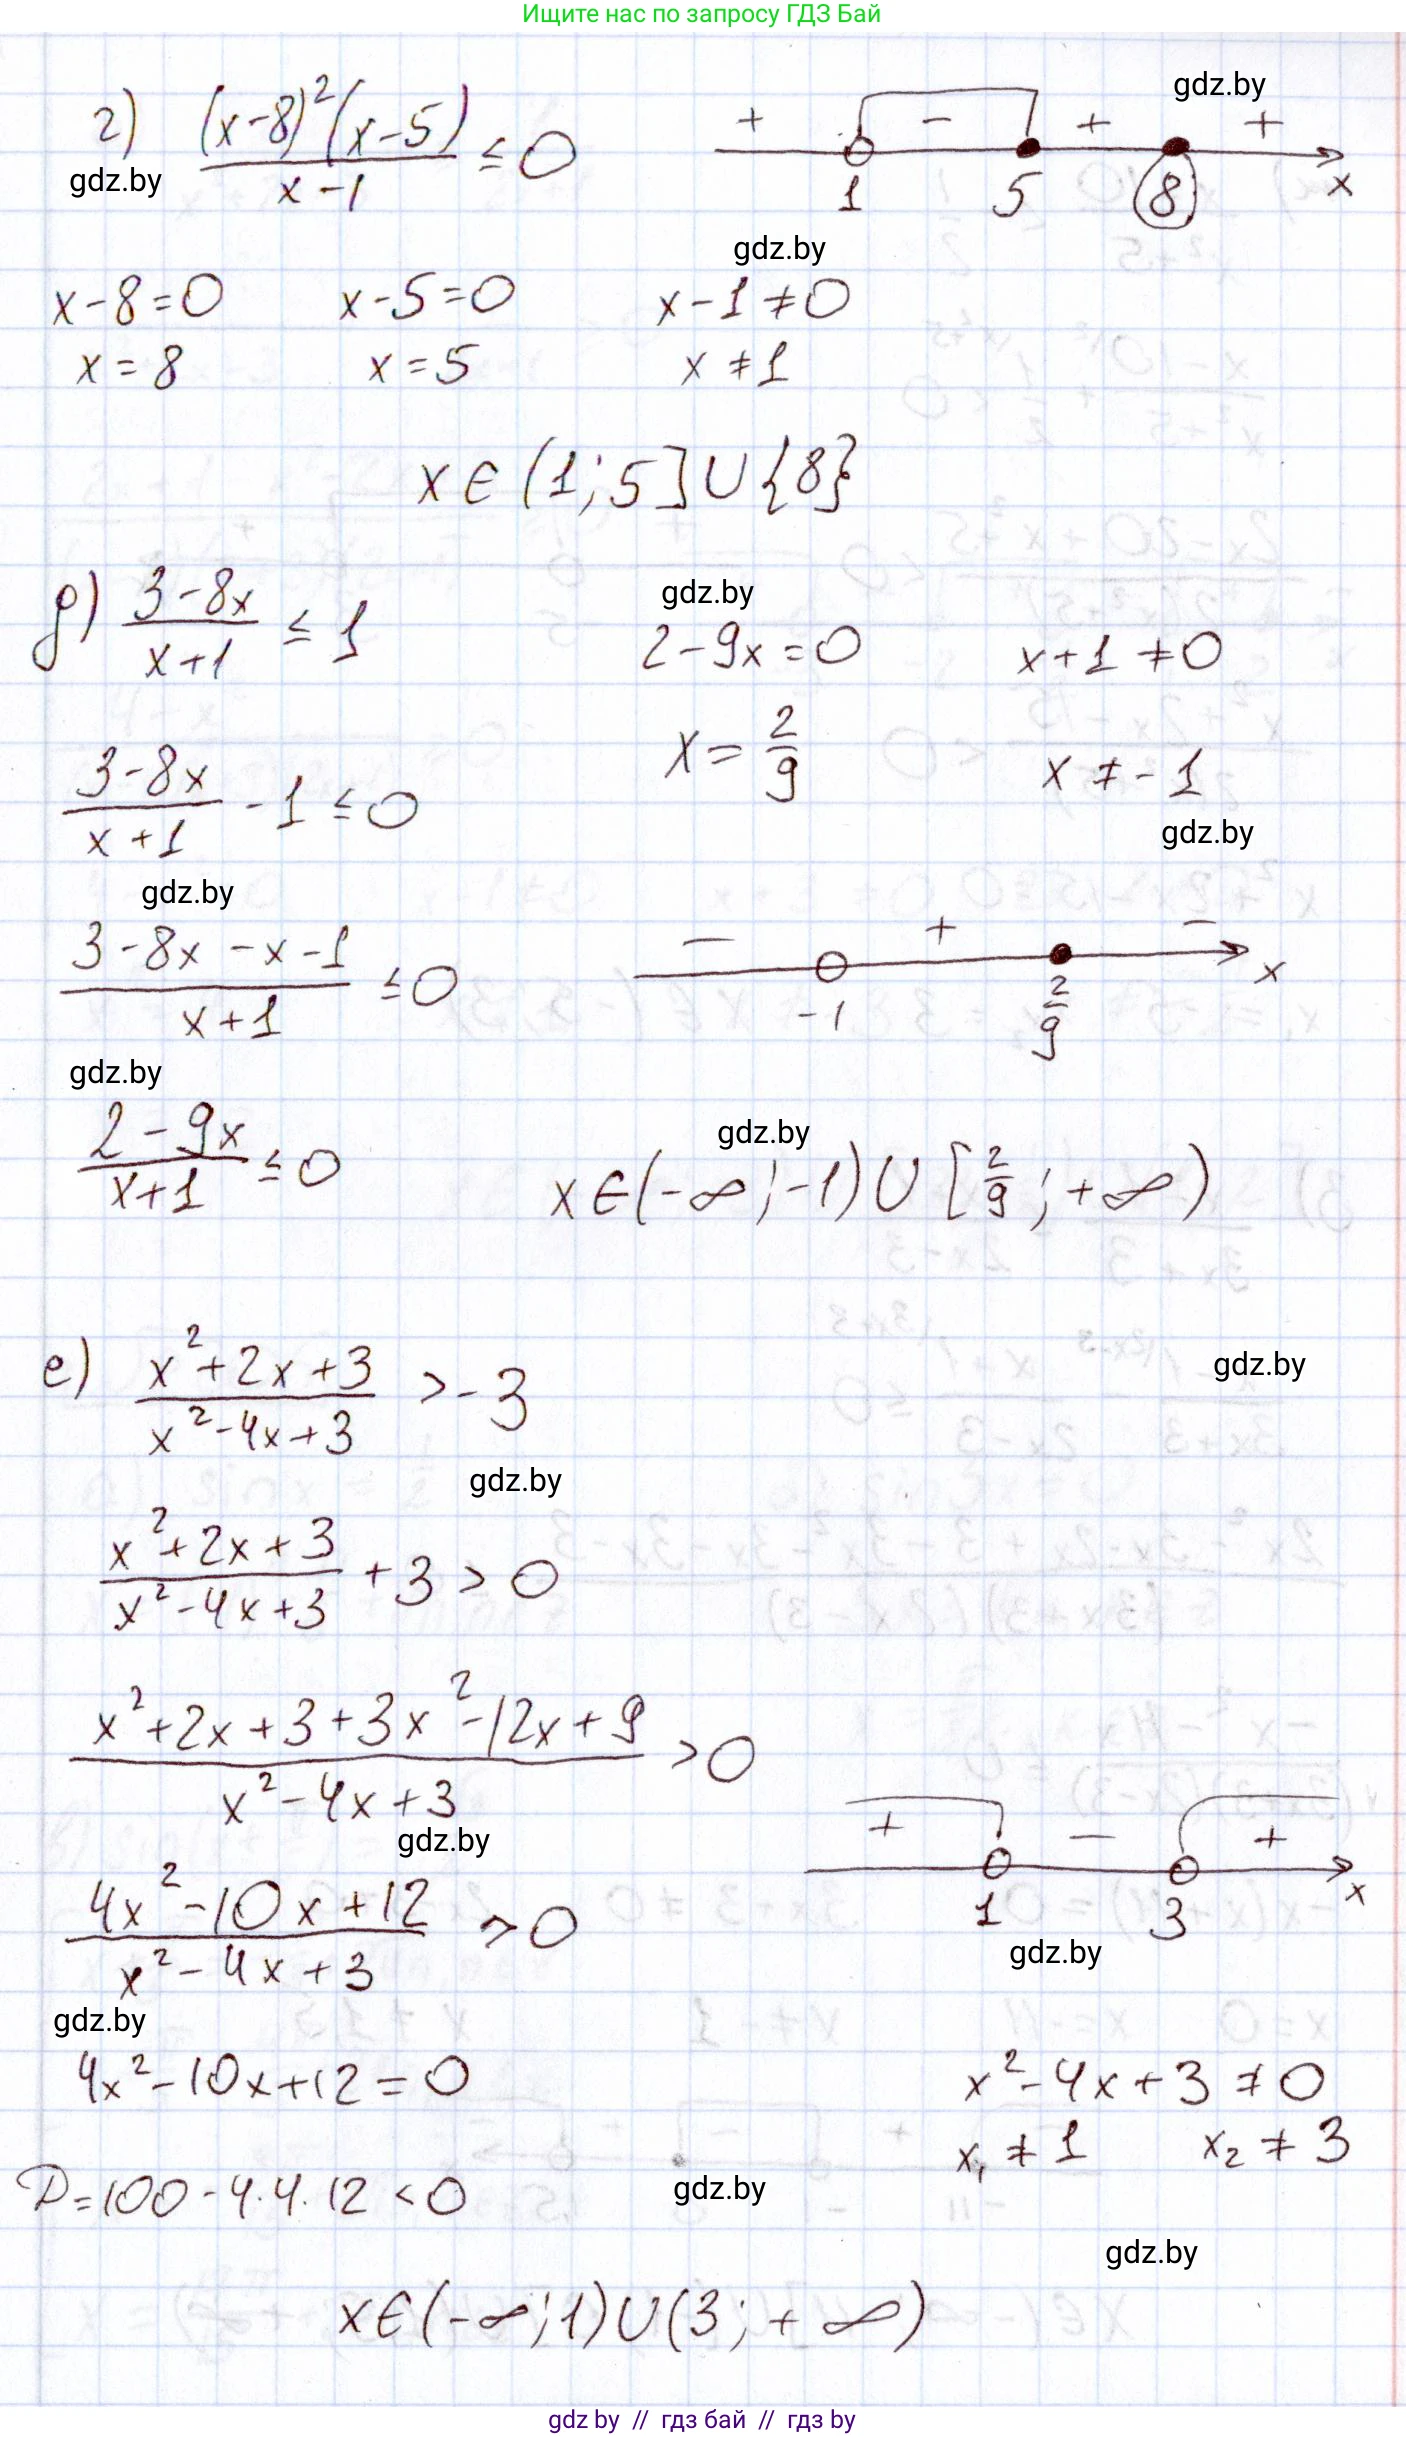 Ищите нас по запросу ГДЗ Бай
г) (x-8)²(x-5) / (x-1) ≤ 0
+ - + + gdz.by
1 5 8 x
gdz.by
gdz.by
x-8=0 x-5=0 x-1≠0
x=8 x=5 x≠1
x∈(1;5]∪{8}
д) (3-8x)/(x+1) ≤ 1
gdz.by
2-9x=0 x+1≠0
(3-8x)/(x+1) -1 ≤ 0
x = 2/9 x≠-1
gdz.by
gdz.by
(3-8x-x-1)/(x+1) ≤ 0
- + -
-1 2/9 x
gdz.by
(2-9x)/(x+1) ≤ 0
gdz.by
x∈(-∞;-1)∪[2/9;+∞)
е) (x²+2x+3)/(x²-4x+3) > -3
gdz.by
gdz.by
(x²+2x+3)/(x²-4x+3) +3 > 0
(x²+2x+3+3x²-12x+9)/(x²-4x+3) > 0
gdz.by
+ - +
1 3 x
gdz.by
(4x²-10x+12)/(x²-4x+3) > 0
gdz.by
4x²-10x+12=0 x²-4x+3≠0
x₁≠1 x₂≠3
D=100-4·4·12<0
gdz.by
gdz.by
x∈(-∞;1)∪(3;+∞)
gdz by // гдз бай // гдз by